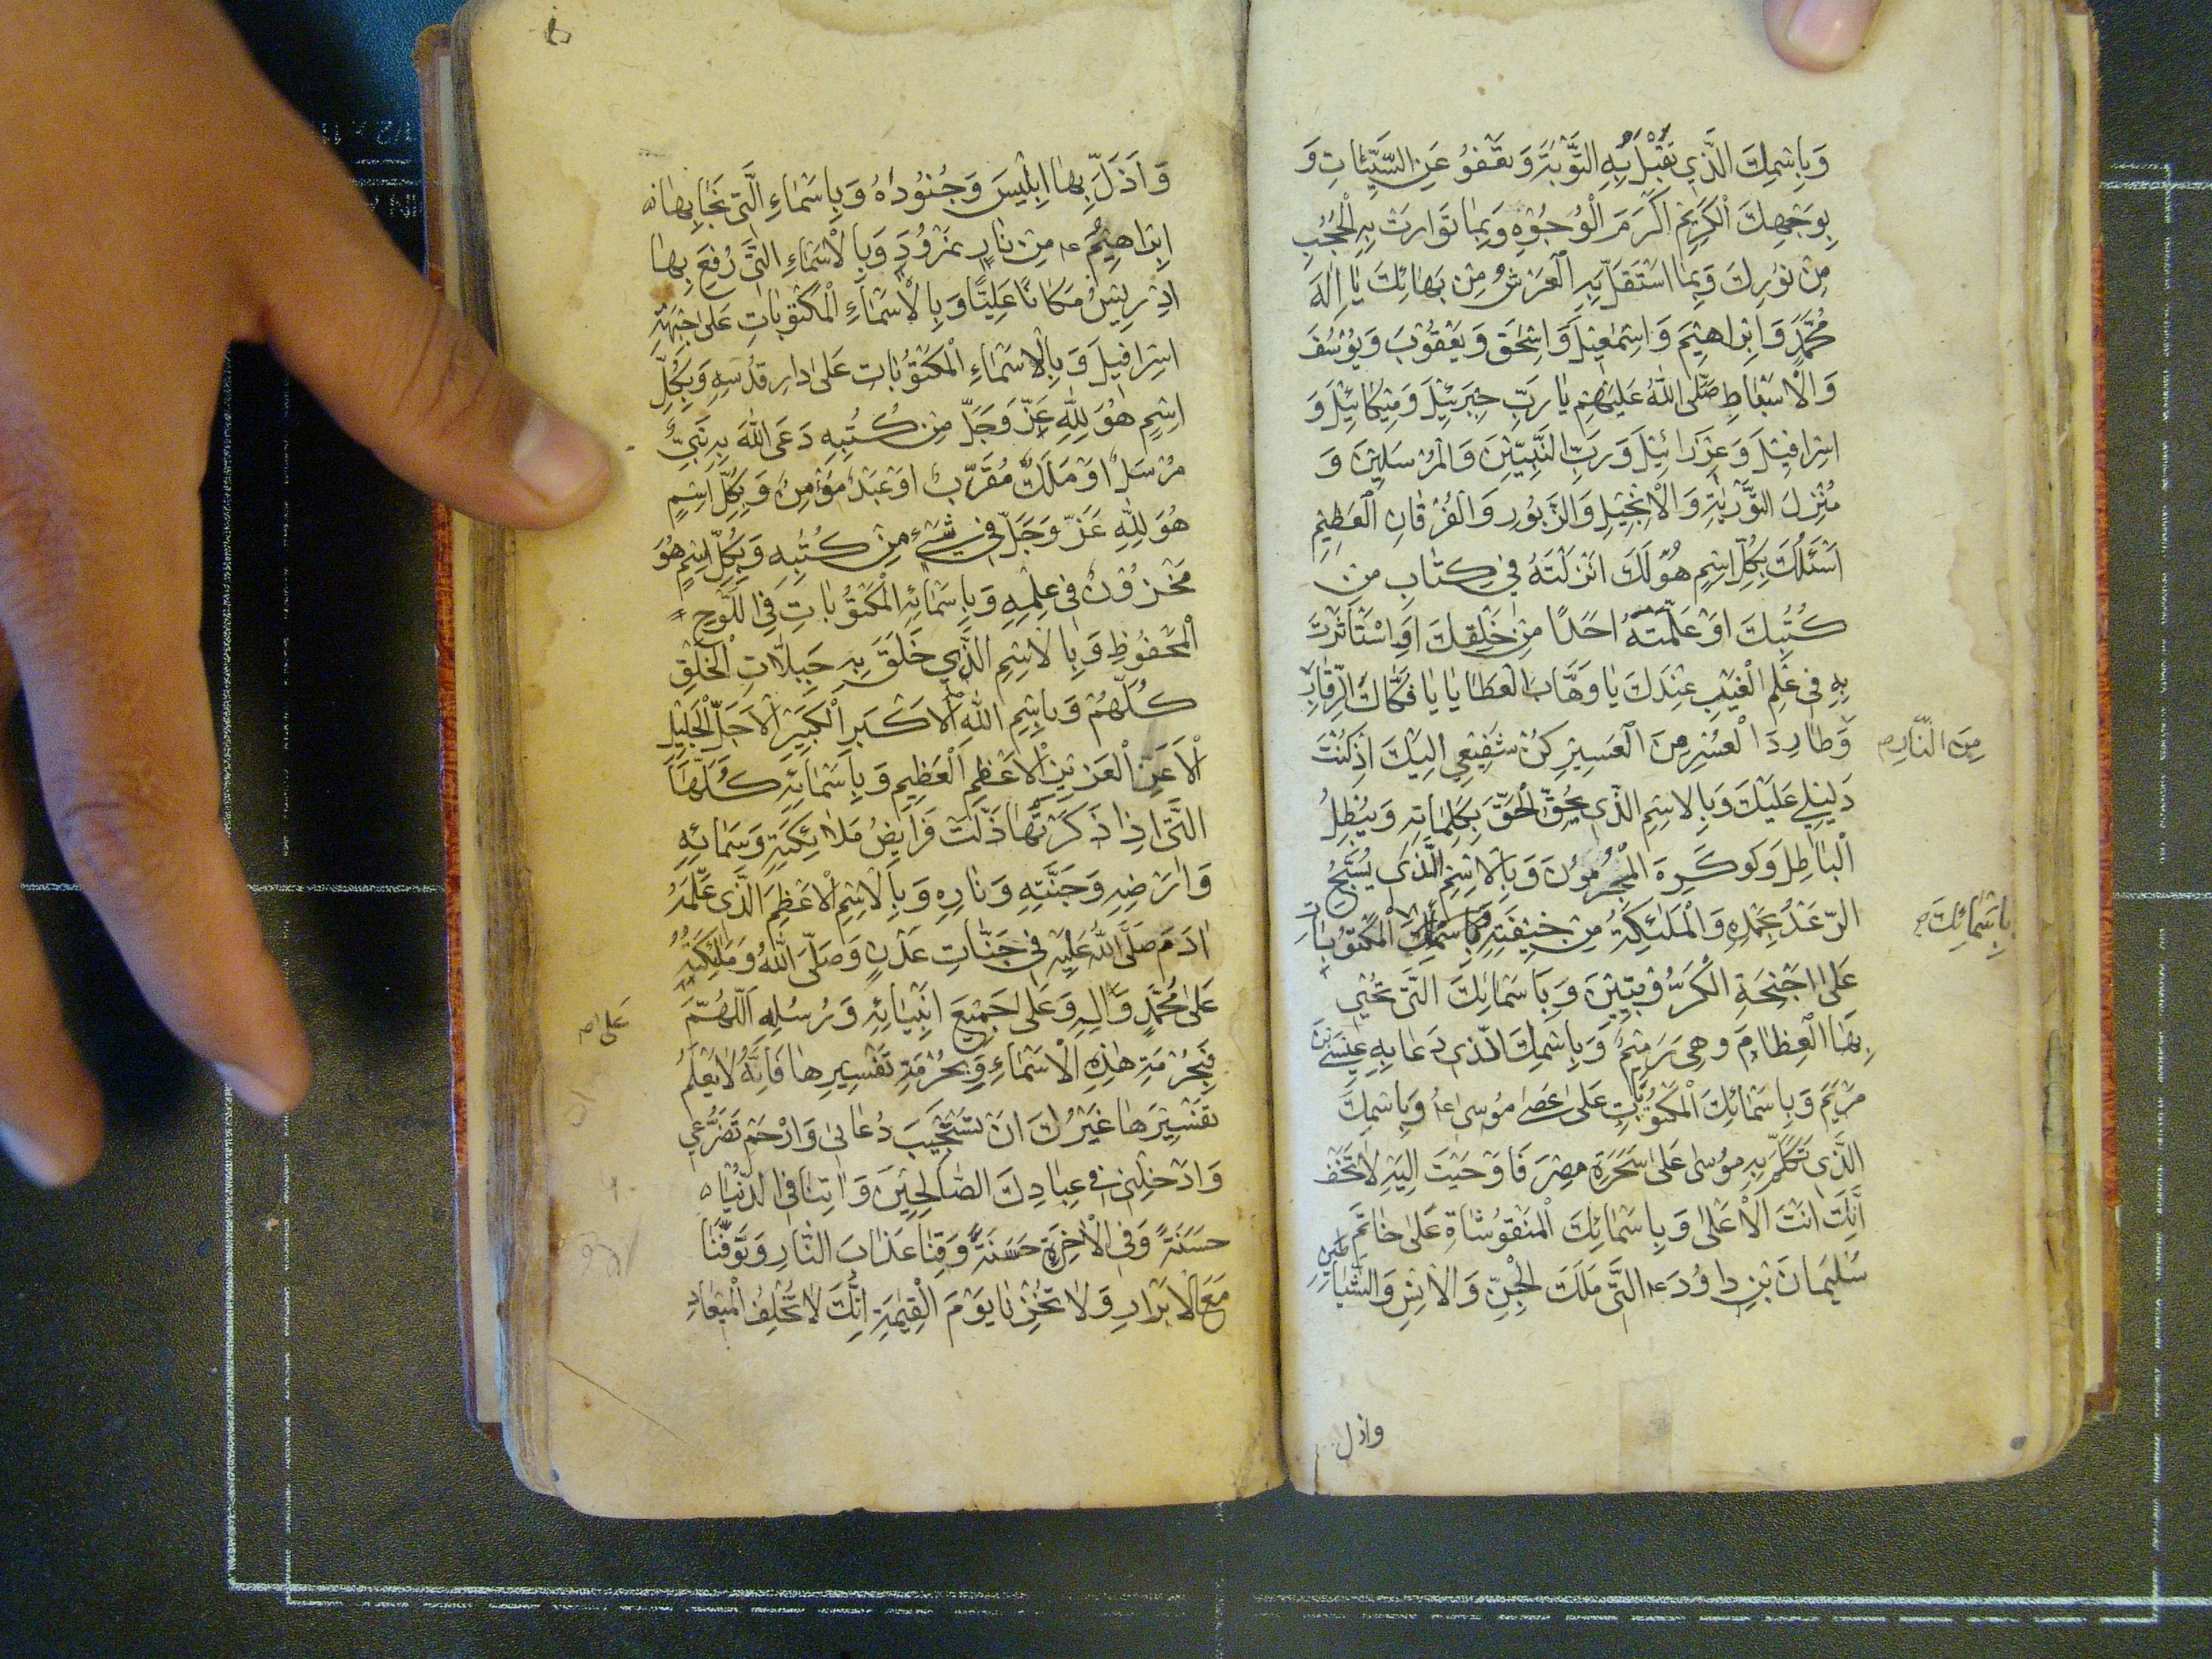 وَبِاسْمِكَ الَّذِي تَقْبَلُ بِهِ التَّوْبَةَ وَ تَعْفُو عَنِ السَّيِّئَاتِ وَ
بِوَجْهِكَ الْكَرِيمِ اَكْرَمَ الْوُجُوْهِ وَبِمَا تَوَارَتْ بِهِ الْحُجُبُ
مِنْ نُوْرِكَ وَبِمَا اسْتَقَلَّ بِهِ الْعَرْشُ مِنْ بَهَائِكَ يَا اِلٰهَ
مُحَمَّدٍ وَ اِبْرَاهِيْمَ وَ اِسْمٰعِيْلَ وَ اِسْحٰقَ وَ يَعْقُوْبَ وَ يُوْسُفَ
وَالْاَسْبَاطِ صَلَّى اللّٰهُ عَلَيْهِمْ يَا رَبِّ جِبْرَئِيْلَ وَ مِيْكَائِيْلَ وَ
اِسْرَافِيْلَ وَ عِزْرَائِيْلَ وَ رَبِّ النَّبِيِّيْنَ وَ الْمُرْسَلِيْنَ وَ
مُنْزِلَ التَّوْرٰيةِ وَ الْاِنْجِيْلِ وَ الزَّبُوْرِ وَ الْفُرْقَانِ الْعَظِيْمِ
اَسْئَلُكَ بِكُلِّ اِسْمٍ هُوَ لَكَ اَنْزَلْتَهُ فِي كِتَابٍ مِنْ
كُتُبِكَ اَوْ عَلَّمْتَهُ اَحَدًا مِنْ خَلْقِكَ اَوِ اسْتَأْثَرْتَ
بِهِ فِي عِلْمِ الْغَيْبِ عِنْدَكَ يَا وَهَّابَ الْعَطَايَا يَا فَكَّاكَ الرِّقَابِ
مِنَ النَّارِ
وَ طَارِدَ الْعُسْرِ مِنَ الْعَسِيْرِ كُنْ شَفِيْعِي اِلَيْكَ اِذْ كُنْتَ
دَلِيْلِي عَلَيْكَ وَ بِالْاِسْمِ الَّذِي يُحِقُّ الْحَقَّ بِكَلِمَاتِهِ وَ يُبْطِلُ
الْبَاطِلَ وَ لَوْ كَرِهَ الْمُجْرِمُوْنَ وَ بِالْاِسْمِ الَّذِي يُسَبِّحُ
الرَّعْدُ بِحَمْدِهِ وَ الْمَلٰئِكَةُ مِنْ خِيْفَتِهِ وَ بِاَسْمَائِكَ الْمَكْتُوْبَاتِ
بِاَسْمَائِكَ
عَلٰى اَجْنِحَةِ الْكَرُّوْبِيِّيْنَ وَ بِاَسْمَائِكَ الَّتِي تُحْيِي
بِهَا الْعِظَامَ وَ هِيَ رَمِيْمٌ وَ بِاسْمِكَ الَّذِي دَعَا بِهِ عِيْسَى بْنَ
مَرْيَمَ وَ بِاَسْمَائِكَ الْمَكْتُوْبَاتِ عَلٰى عَصَا مُوْسٰى ع وَ بِاسْمِكَ
الَّذِي تَكَلَّمَ بِهِ مُوْسٰى عَلٰى سَحَرَةِ مِصْرَ فَاَوْحَيْتَ اِلَيْهِ لَا تَخَفْ
اِنَّكَ اَنْتَ الْاَعْلٰى وَ بِاَسْمَائِكَ الْمَنْقُوْشَاةِ عَلٰى خَاتَمِ
سُلَيْمَانَ بْنِ دَاوُدَ ع الَّتِي مَلَكَ الْجِنِّ وَ الْاِنْسِ وَ الشَّيَاطِيْنِ
واذل
وَ اَذَلَّ بِهَا اِبْلِيْسَ وَ جُنُوْدَهُ وَ بِاَسْمَاءِ الَّتِي نَجَا بِهَا
اِبْرَاهِيْمُ ع مِنْ نَارِ نَمْرُوْدَ وَ بِالْاَسْمَاءِ الَّتِي رُفِعَ بِهَا
اِدْرِيْسُ مَكَانًا عَلِيًّا وَ بِالْاَسْمَاءِ الْمَكْتُوْبَاتِ عَلٰى جَبْهَةِ
اِسْرَافِيْلَ وَ بِالْاَسْمَاءِ الْمَكْتُوْبَاتِ عَلٰى دَارِ قُدْسِهِ وَ بِكُلِّ
اِسْمٍ هُوَ لِلّٰهِ عَزَّ وَ جَلَّ مِنْ كُتُبِهِ دَعَى اللّٰهَ بِهِ نَبِيٌّ
مُرْسَلٌ اَوْ مَلَكٌ مُقَرَّبٌ اَوْ عَبْدٌ مُؤْمِنٌ وَ بِكُلِّ اِسْمٍ
هُوَ لِلّٰهِ عَزَّ وَ جَلَّ فِي شَيْءٍ مِنْ كُتُبِهِ وَ بِكُلِّ اِسْمٍ هُوَ
مَخْزُوْنٌ فِي عِلْمِهِ وَ بِاَسْمَائِهِ الْمَكْتُوْبَاتِ فِي اللَّوْحِ
الْمَحْفُوْظِ وَ بِالْاِسْمِ الَّذِي خَلَقَ بِهِ جَبِلَّاتِ الْخَلْقِ
كُلِّهِمْ وَ بِاسْمِ اللّٰهِ الْاَكْبَرِ الْكَبِيْرِ الْاَجَلِّ الْجَلِيْلِ
الْاَعَزِّ الْعَزِيْزِ الْاَعْظَمِ الْعَظِيْمِ وَ بِاَسْمَائِهِ كُلِّهَا
الَّتِي اِذَا ذَكَرْتَهَا ذَلَّتْ فَرَايِضُ مَلَائِكَتِهِ وَ سَمَائِهِ
وَ اَرْضِهِ وَ جَنَّتِهِ وَ نَارِهِ وَ بِالْاِسْمِ الْاَعْظَمِ الَّذِي عَلَّمَهُ
اٰدَمَ صَلَّى اللّٰهُ عَلَيْهِ فِي جَنَّاتِ عَدْنٍ وَ صَلَّى اللّٰهُ وَ مَلٰئِكَتُهُ
عَلٰى مُحَمَّدٍ وَ اٰلِهِ وَ عَلٰى جَمِيْعِ اَنْبِيَائِهِ وَ رُسُلِهِ اَللّٰهُمَّ
على
فَبِحُرْمَةِ هٰذِهِ الْاَسْمَاءِ وَ بِحُرْمَةِ تَفْسِيْرِهَا فَاِنَّهُ لَا يَعْلَمُ
تَفْسِيْرَهَا غَيْرُكَ اَنْ تَسْتَجِيْبَ دُعَائِي وَ ارْحَمْ تَضَرُّعِي
وَ اَدْخِلْنِي فِي عِبَادِكَ الصَّالِحِيْنَ وَ اٰتِنَا فِي الدُّنْيَا
حَسَنَةً وَ فِي الْاٰخِرَةِ حَسَنَةً وَ قِنَا عَذَابَ النَّارِ وَ تَوَفَّنَا
مَعَ الْاَبْرَارِ وَ لَا تُخْزِنَا يَوْمَ الْقِيٰمَةِ اِنَّكَ لَا تُخْلِفُ الْمِيْعَادِ